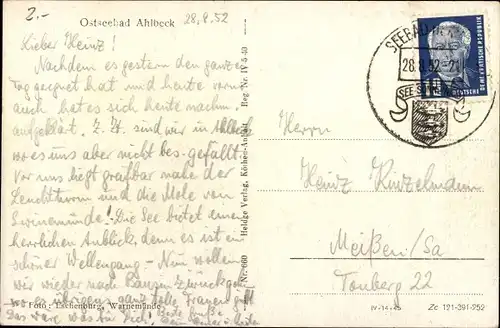 2.-
Ostseebad Ahlbeck 28.8.52
Lieber Heinz!
Nachdem es gestern den ganzen
Tag geregnet hat und heute vorm.
auch hat es sich heute nachm.
aufgeklärt. Z. Zt. sind wir in Ahlbeck
wo es uns aber nicht bes. gefällt.
Vor uns liegt greifbar nahe der
Leuchtturm und die Mole von
Swinemünde! Die See bietet einen
herrlichen Anblick, denn es ist ein
schöner Wellengang - Nun wollen
wir wieder nach Bansin zurück
wo es übrigens ganz tolle Frauen gibt
Das wäre was für Dich! Beste Grüße
Foto: Eschenburg, Warnemünde
Reg. Nr. IV-5-40
Heldge Verlag, Köthen-Anhalt
Nr. 660
SEEBAD
28.8.52-21
DEUTSCHE
DEMOKRATISCHE REPUBLIK
Herrn
Heinz
Meißen/Sa
Tonberg 22
IV-14-45 Zc 121-391-252